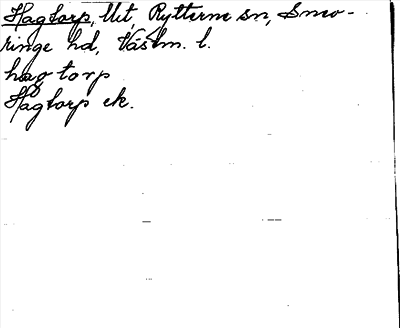 Hagtorp, Ut, Rytterne sn, Snev-
ringe hd, Västm. l.
hag torp
Hagtorp ek.